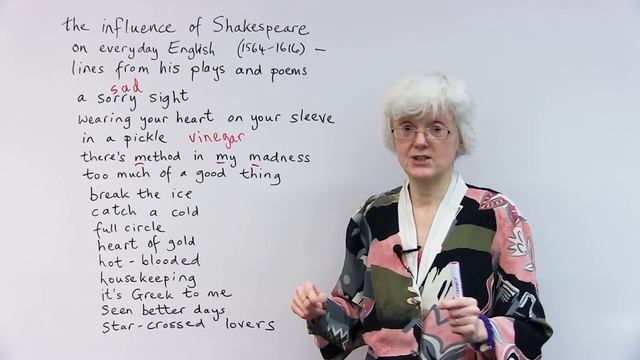 the influence of Shakespeare
on everyday English (1564-1616) –
lines from his plays and poems
sad
a sorry sight
wearing your heart on your sleeve
in a pickle vinegar
there's method in my madness
too much of a good thing
break the ice
catch a cold
full circle
heart of gold
hot-blooded
housekeeping
it's Greek to me
seen better days
star-crossed lovers